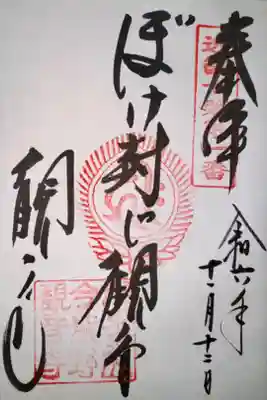 奉拝
令和六年
十二月十二日
ぼけ封じ観音
観音寺